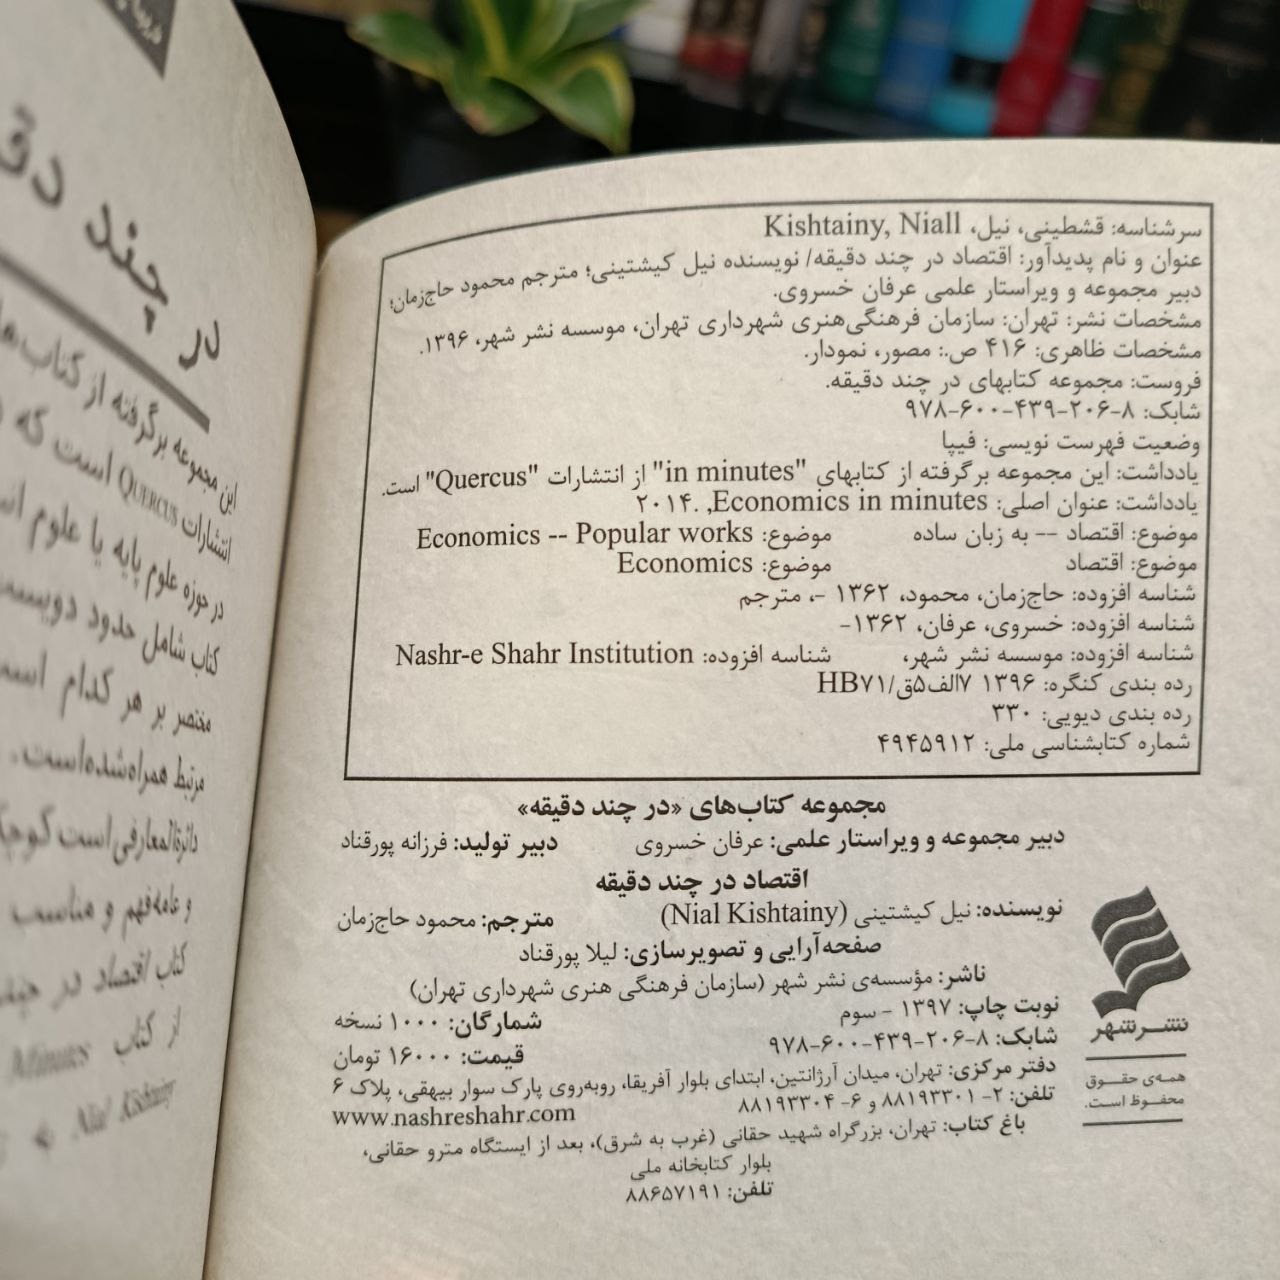 سرشناسه: قشطینی، نیل، Kishtainy, Niall
عنوان و نام پدیدآور: اقتصاد در چند دقیقه/ نویسنده نیل کیشتینی؛ مترجم محمود حاج‌زمان؛
دبیر مجموعه و ویراستار علمی عرفان خسروی.
مشخصات نشر: تهران: سازمان فرهنگی‌هنری شهرداری تهران، موسسه نشر شهر، ۱۳۹۶.
مشخصات ظاهری: ۴۱۶ ص.: مصور، نمودار.
فروست: مجموعه کتابهای در چند دقیقه.
شابک: ۸-۲۰۶-۴۳۹-۶۰۰-۹۷۸
وضعیت فهرست نویسی: فیپا
یادداشت: این مجموعه برگرفته از کتابهای "in minutes" از انتشارات "Quercus" است.
یادداشت: عنوان اصلی: Economics in minutes, .۲۰۱۴
موضوع: اقتصاد -- به زبان ساده موضوع: Economics -- Popular works
موضوع: اقتصاد موضوع: Economics
شناسه افزوده: حاج‌زمان، محمود، ۱۳۶۲ -، مترجم
شناسه افزوده: خسروی، عرفان، ۱۳۶۲-
شناسه افزوده: موسسه نشر شهر، شناسه افزوده: Nashr-e Shahr Institution
رده بندی کنگره: ۱۳۹۶ ۷الف۵ق/HB۷۱
رده بندی دیویی: ۳۳۰
شماره کتابشناسی ملی: ۴۹۴۵۹۱۲
مجموعه کتاب‌های «در چند دقیقه»
دبیر مجموعه و ویراستار علمی: عرفان خسروی دبیر تولید: فرزانه پورقناد
اقتصاد در چند دقیقه
نویسنده: نیل کیشتینی (Nial Kishtainy) مترجم: محمود حاج‌زمان
صفحه‌آرایی و تصویرسازی: لیلا پورقناد
ناشر: مؤسسه‌ی نشر شهر (سازمان فرهنگی هنری شهرداری تهران)
نوبت چاپ: ۱۳۹۷ - سوم شمارگان: ۱۰۰۰ نسخه
شابک: ۸-۲۰۶-۴۳۹-۶۰۰-۹۷۸ قیمت: ۱۶۰۰۰ تومان
دفتر مرکزی: تهران، میدان آرژانتین، ابتدای بلوار آفریقا، روبه‌روی پارک سوار بیهقی، پلاک ۶
تلفن: ۲- ۸۸۱۹۳۳۰۱ و ۶- ۸۸۱۹۳۳۰۴ www.nashreshahr.com
باغ کتاب: تهران، بزرگراه شهید حقانی (غرب به شرق)، بعد از ایستگاه مترو حقانی،
بلوار کتابخانه ملی
تلفن: ۸۸۶۵۷۱۹۱
نشر شهر
همه‌ی حقوق
محفوظ است.
در چند
این مجموعه برگرفته از کتاب‌های
انتشارات QUERCUS است که
در حوزه علوم پایه یا علوم
کتاب شامل حدود دویست
مختصر بر هر کدام است
مرتبط همراه‌شده‌است.
دائرةالمعارفی است کوچک
و عامه‌فهم و مناسب
کتاب اقتصاد در
از کتاب Minutes
Nial Kishtainy به